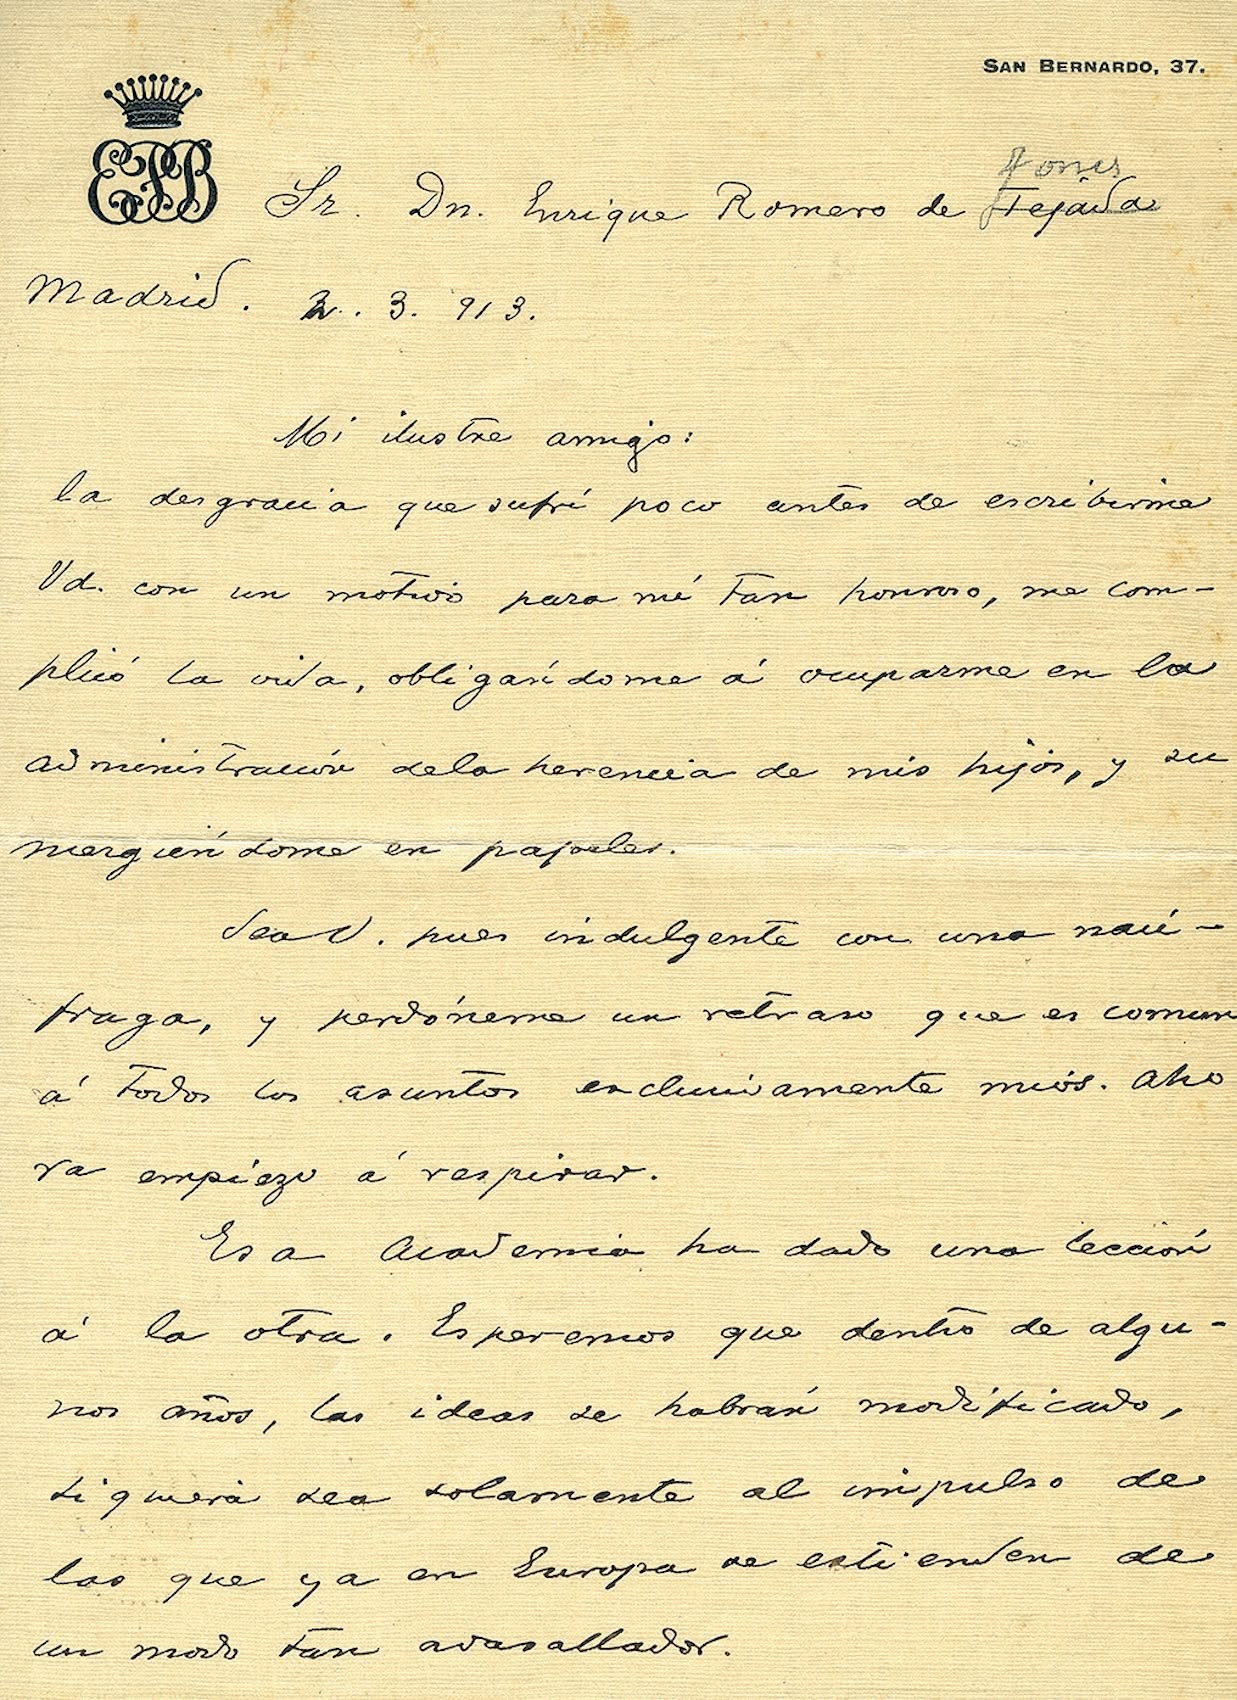 SAN BERNARDO, 37.
EPB
Torres
Sr. Dn. Enrique Romero de Tejada
Madrid. 2. 3. 913.
Mi ilustre amigo:
la desgracia que sufrí poco antes de escribirme
Vd. con un motivo para mí tan honroso, me com-
plicó la vida, obligándome á ocuparme en la
administración dela herencia de mis hijos, y su
mergiéndome en papeles.
Sea V. pues indulgente con una náu-
fraga, y perdóneme un retraso que es comun
á todos los asuntos exclusivamente mios. Aho
ra empiezo á respirar.
Esa Academia ha dado una lección
á la otra. Esperemos que dentro de algu-
nos años, las ideas se habrán modificado,
siquiera sea solamente al impulso de
las que ya en Europa se estienden de
un modo tan avasallador.